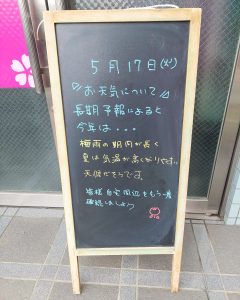 5月17日(火)
お天気について
長期予報によると
今年は・・・
梅雨の期間が長く
夏は気温が高くなりやすい
天候だそうです。
皆様自宅周辺をもう一度
確認しましょう